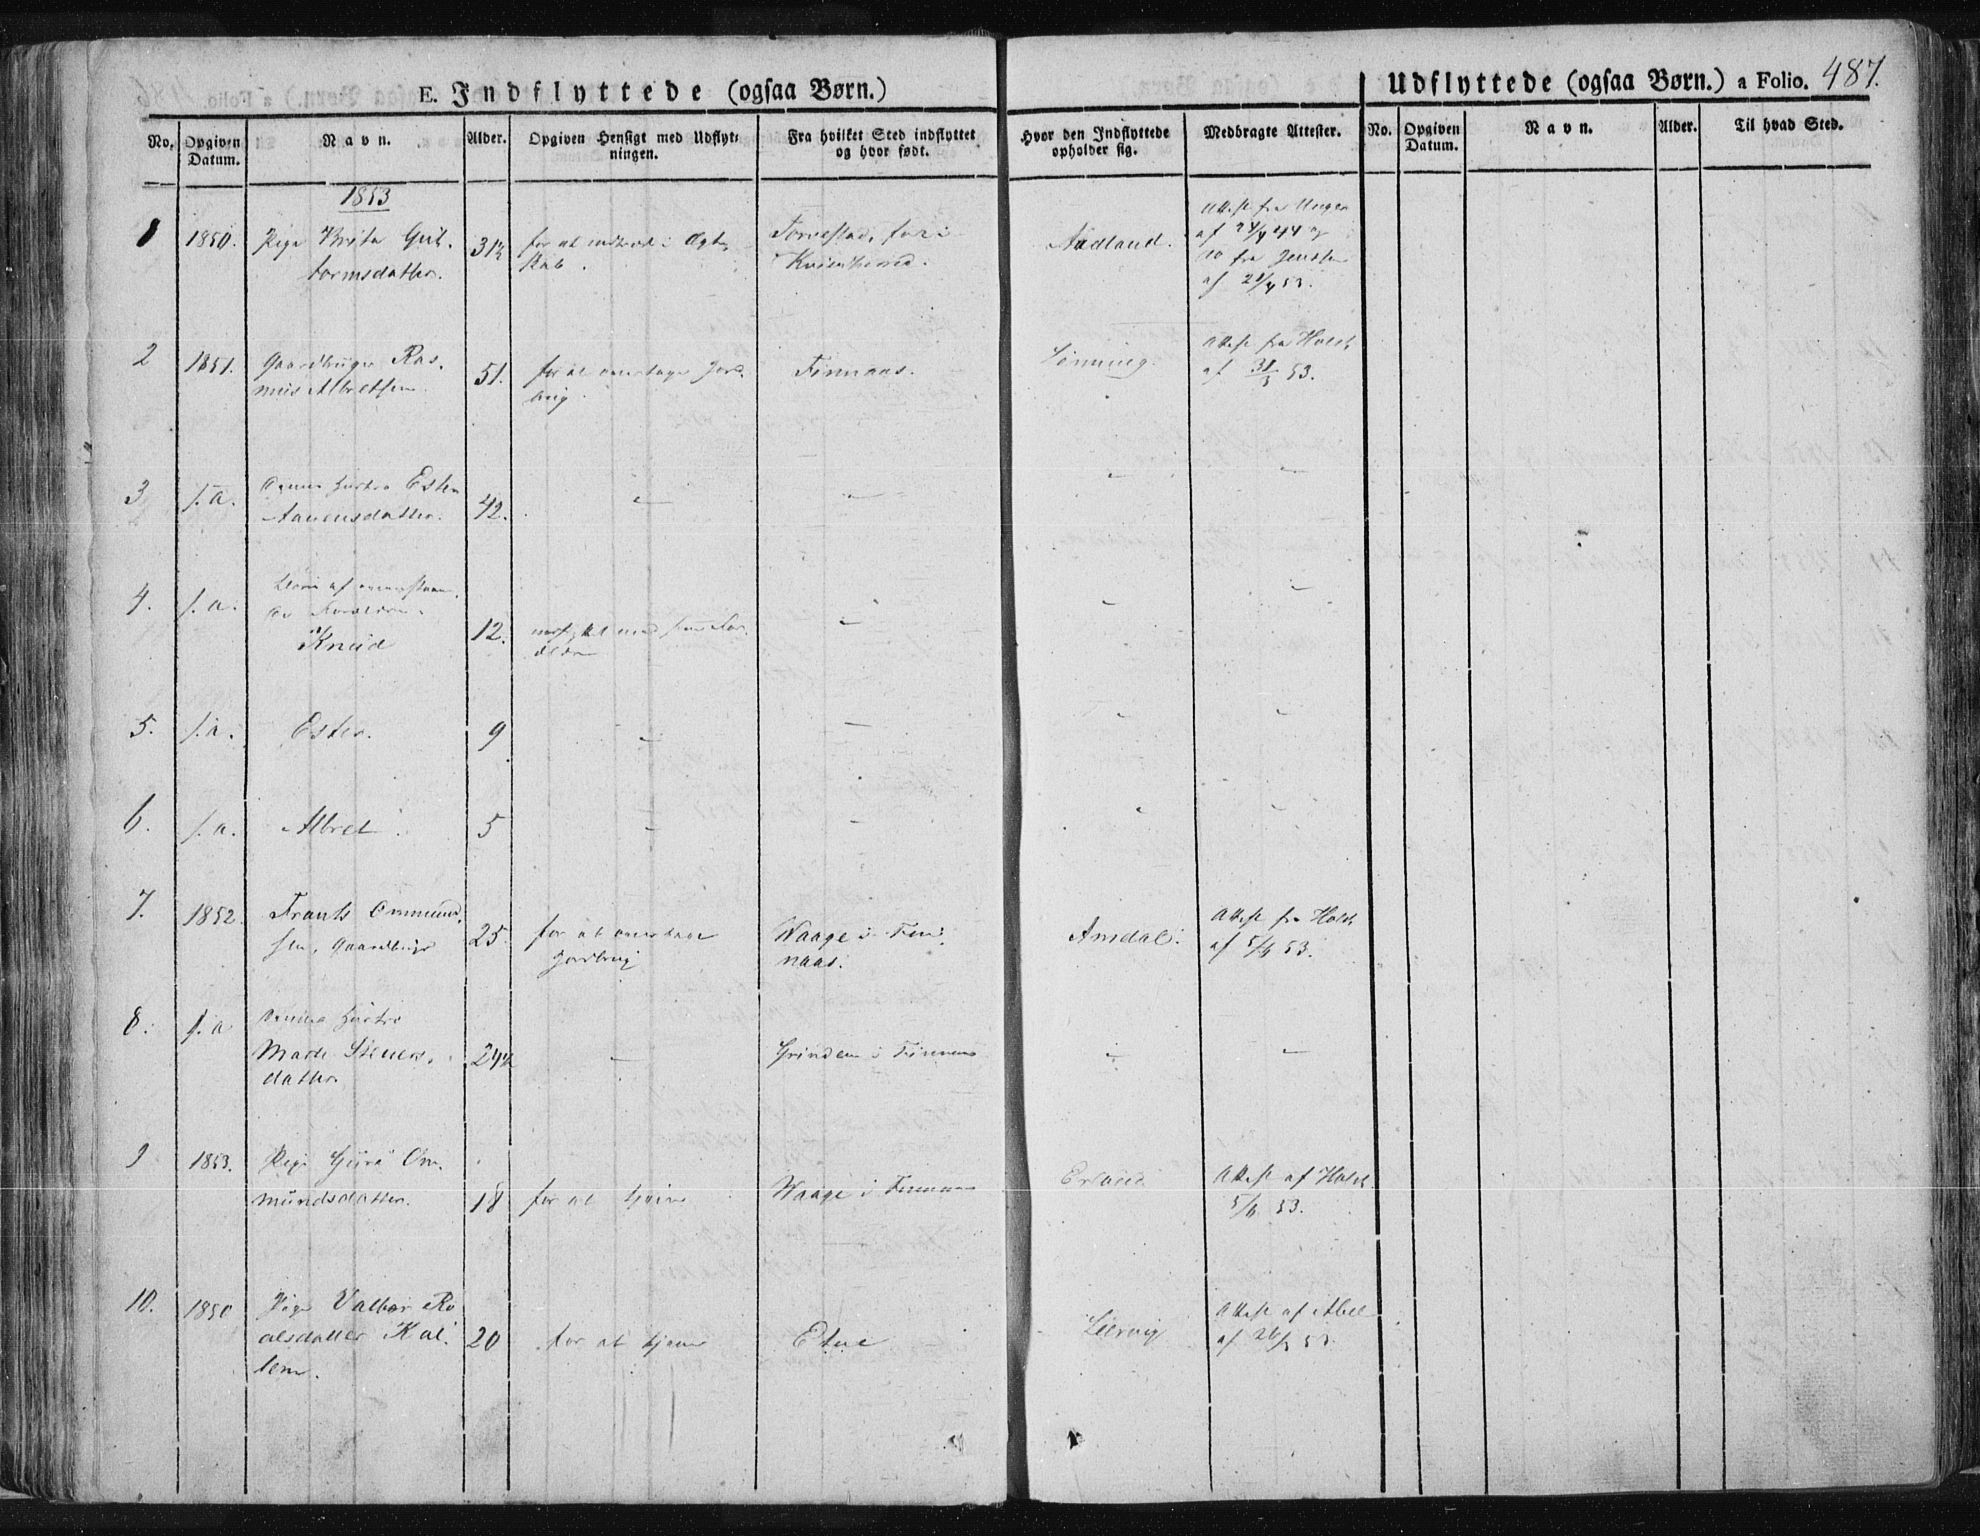 E. Indflyttede (ogsaa Børn.)
Udflyttede (ogsaa Børn.) a Folio. 487.
No. Opgiven Datum. Navn. Alder. Opgiven Hensigt med Udflytningen. Fra hvilket Sted indflyttet og hvor født. Hvor den Indflyttede opholder sig. Medbragte Attester. No. Opgiven Datum. Navn. Alder. Til hvad Sted.
1853
1 1850. Pige Brita Gut-
tormsdatter. 31½ for at indtræde i Ægte-
skab. Torvestad, før i
Kvindherred. Aadland. Attest fra
af 24/4 44 og
fra
af 21/4 53.
2 1851. Gaardbruger Ras-
mus Albretsen 51. for at overtage Jord-
brug. Finnaas. Lønning. Attest fra Holch
af 31/3 53.
3 s.a. Dennes Hustru Ester
Aanensdatter. 42. – – – –
4. s.a. Børn af ovenstaaen-
de Forældre.
Knud 12. indflyttet med sine For-
ældre – – –
5. s.a. Ester. 9 – – – –
6. s.a. Albret 5 – – – –
7. 1852. Frants Ommund-
sen, Gaardbruger 25. for at overtage
Jordbrug Waage i Fin-
naas. Amdal. Attest fra Holch
af 5/6 53.
8. s.a Dennes Hustru
Marte
datter 24½ – Grinden i Finnaas – –
9 1853. Pige Guro Om-
mundsdatter. 18 for at tjene Waage i Finnaas Attest af Holch
5/6 53.
10. 1850 Pige Valbor Ro-
alsdatter
20 for at tjene Etne Leervig Attest af Abel
af 26/3 53.